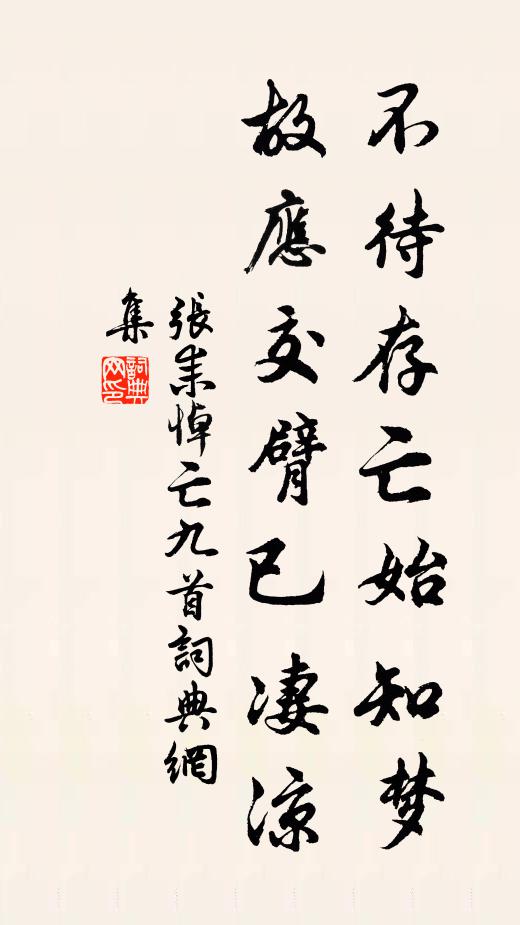 不待存亡始知梦
故應交臂已淒涼
張耒悼亡九首詞典網
集
詞典网印